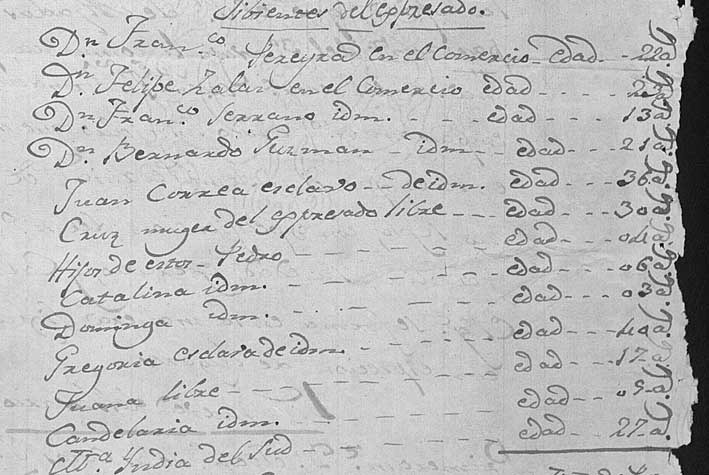 Sirientes del expresado.
Dn. Franco. Pereyra en el Comercio - edad - - 22 a.
Dn. Felipe Zalas en el Comercio edad - - - 23 a.
Dn. Franco. Serrano idm. - - - edad - - - 13 a.
Dn. Bernardo Guzman - idm - - edad - - - 21 a.
Juan Correa esclavo - - de idm. edad - - - 36 a.
Cruz muger del expresado libre - - - edad - - - 30 a.
Hijos de estos - Pedro - - - edad - - - 04 a.
Catalina idm. - - - edad - - - 06 a.
Dominga idm. - - - edad - - - 03 a.
Gregoria esclava de idm. - - - edad - - - 40 a.
Juana libre - - - edad - - - 17 a.
Candelaria idm. - - - edad - - - 05 a.
India del Sud - - - edad - - - 27 a.